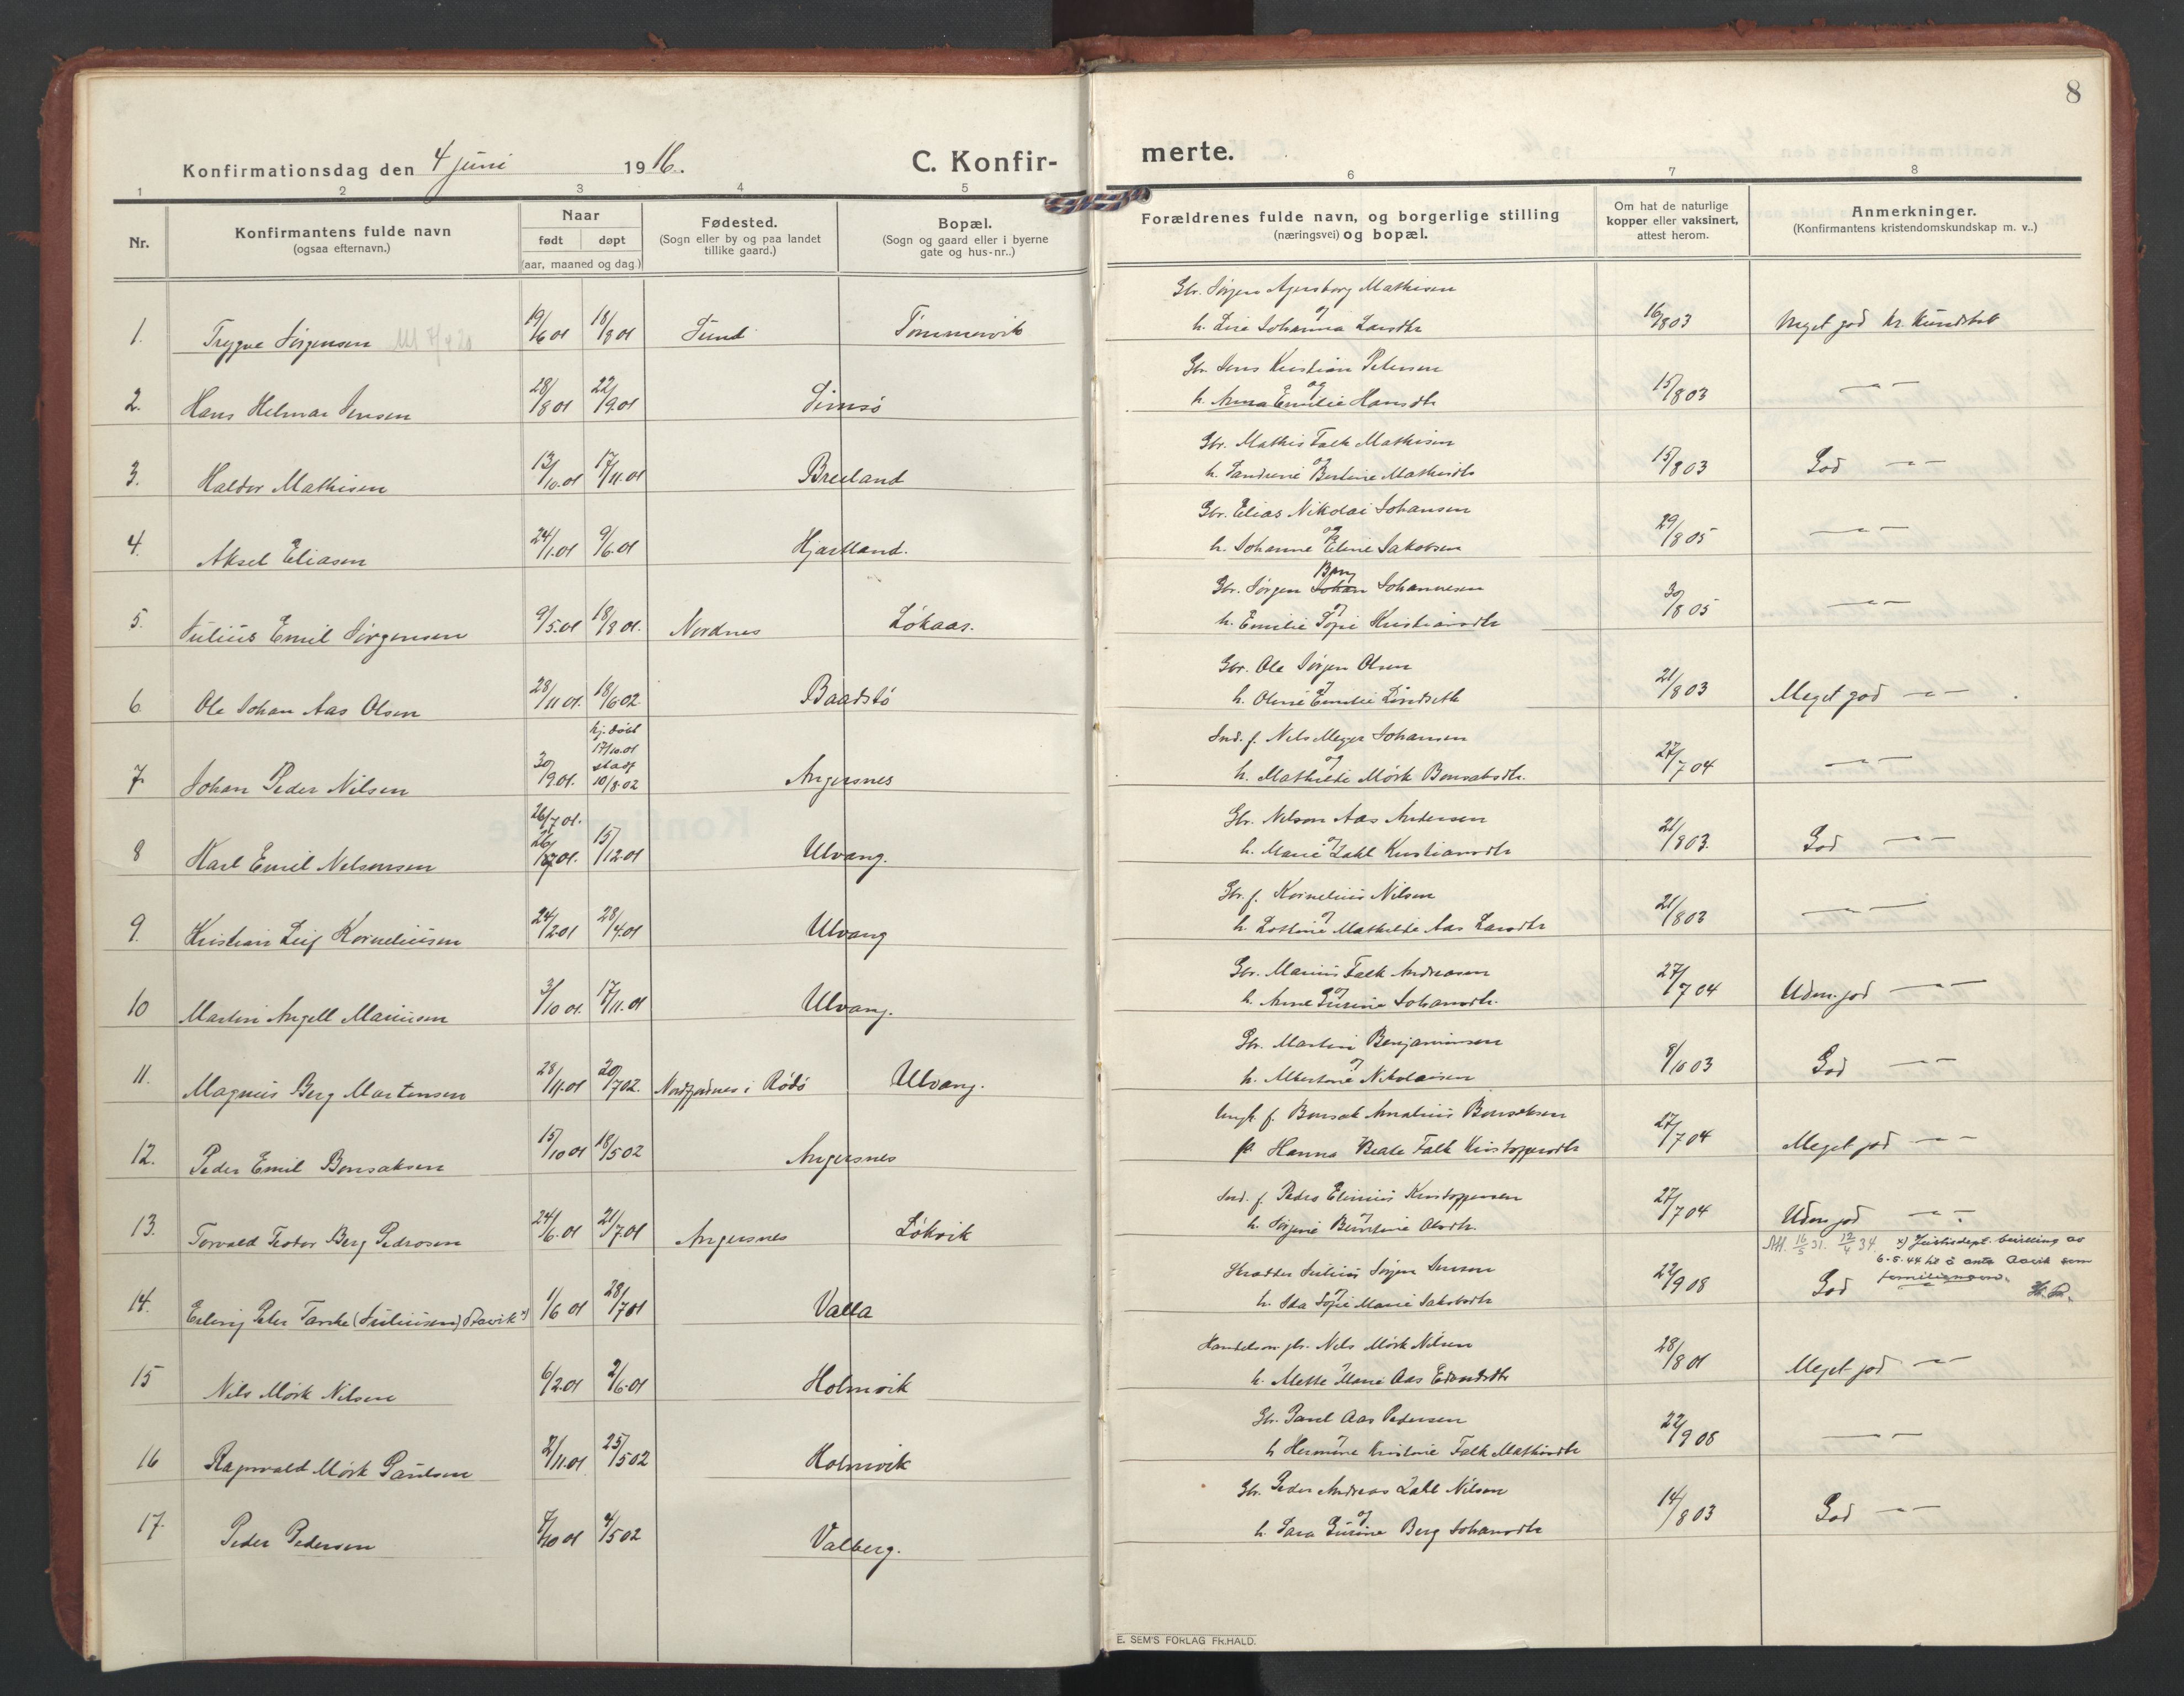 8
Konfirmationsdag den 4 juni 1916.
C. Konfir-
merte.
1 2 3 4 5 6 7 8
Nr.
Konfirmantens fulde navn
(ogsaa efternavn.)
Naar
født døpt
(aar, maaned og dag.)
Fødested.
(Sogn eller by og paa landet
tillike gaard.)
Bopæl.
(Sogn og gaard eller i byerne
gate og hus-nr..)
Forældrenes fulde navn, og borgerlige stilling
(næringsvei) og bopæl.
Om hat de naturlige
kopper eller vaksinert,
attest herom.
Anmerkninger.
(Konfirmantens kristendomskundskap m. v..)
Gbr. Jørgen Agersborg Mathisen
og
1. Trygve Jørgensen 19/6 01 18/8 01 Sund Tømmervik h. Lise Johanna Larsdtr 16/8 03 Meget god kr. kundskab
Gbr. Jens Kristian Petersen
og
2. Hans Helmar Jensen 28/8 01 22/9 01 Simsø h. Anna Emilie Hansdtr 15/8 03 — " —
Gbr. Mathis Falk Mathisen
og
3. Haldor Mathisen 13/10.01 17/11.01 Breiland h. Sandrine Bertine Mathisdtr 15/8 03 God — " —
Gbr. Elias Nikolai Johansen
og
4. Aksel Eliasen 24/1.01 9/6.01 Hjartland. h. Johanne Eline Jakobsen 29/8 05 — " —
Berg
Gbr. Jørgen Johan Johannesen
og
5. Julius Emil Jørgensen 9/5.01 18/8 01. Nordnes Løkaas. h. Emilie Sofie Kristiansdtr 30/8 05 — " —
Gbr. Ole Jørgen Olsen
og
6. Ole Johan Aas Olsen 28/11 01. 18/6 02 Baadstø h. Oline Emilie Lindseth 21/8 03 Meget god — " —
hj. døbt
17/10.01
stadf
10/8.02
Ind. f. Nils Meyer Johansen
og
7. Johan Peder Nilsen 30/9 01. Angersnes h. Mathilde Mørk Bonsaksdtr. 27/7 04 — " —
26/7 01.
Gbr. Nelson Aas Andersen
og
8 Karl Emil Nelsonsen 26/8 01. 15/12.01 Ulvang. h. Marie Zahl Kristiansdtr 21/8 03. God — " —
Gbr. f. Kornelius Nilsen
og
9. Kristian Leif Korneliusen 24/2.01 28/4.01 Ulvang h. Lottine Mathilde Aas Larsdtr 21/8 03 — " —
Gbr. Marius Falk Andreasen
og
10 Martin Angell Mariusen 3/10 01. 17/11.01 Ulvang. h. Anne Gurine Johansdtr. 27/7 04 Udm. god — " —
Gbr. Martin Benjaminsen
og
11. Magnus Berg Martinsen 28/11.01 20/7 02. Nordfjordnes i Rødø Ulvang. h. Albertine Nikolaisen 8/10 03 God — " —
Ungk. f. Bonsak Amalius Bonsaksen
12. Peder Emil Bonsaksen 15/10 01 18/5 02 Angersnes p. Hanna Beate Falk Kristoffersdtr 27/7 04 Meget god — " —
Ind. f. Pedro Elinius Kristoffersen
og
13. Torvald Teodor Berg Pedrosen 24/6.01 21/7.01 Angersnes Løkvik h. Jørgine Berntine Olsdtr. 27/7 04 Udm god — " —
Att. 16/5 31. 12/4 34. x) Justisdept. bevilling av
6-5.44 til å anta Aavik som
familienavn. H. P.
Skrædder Julius Jørgen Jensen
og
14. Erling Peter Tanke (Juliussen) Aavik x) 1/6 01 28/7 01 Valla h. Ida Sofie Marie Jakobsdtr 22/9 08 God
Handelsm. gbr. Nils Mørk Nilsen
og
15 Nils Mørk Nilsen 6/2.01 2/6.01 Holmvik h. Mette Marie Aas Edvardsdtr 28/8 01 Meget god — " —
Gbr. Paul Aas Pedersen
og
16 Ragnvald Mørk Paulsen 2/11.01 25/5 02 Holmvik h. Hermine Kristine Falk Mathisdtr 22/9 08 — " —
Gbr. Peder Andreas Zahl Nilsen
og
17. Peder Pedersen 7/10 01 4/5 02 Valberg. h. Sara Gurine Berg Johansdtr 14/8 03 God — " —
E. SEM'S FORLAG FR.HALD.